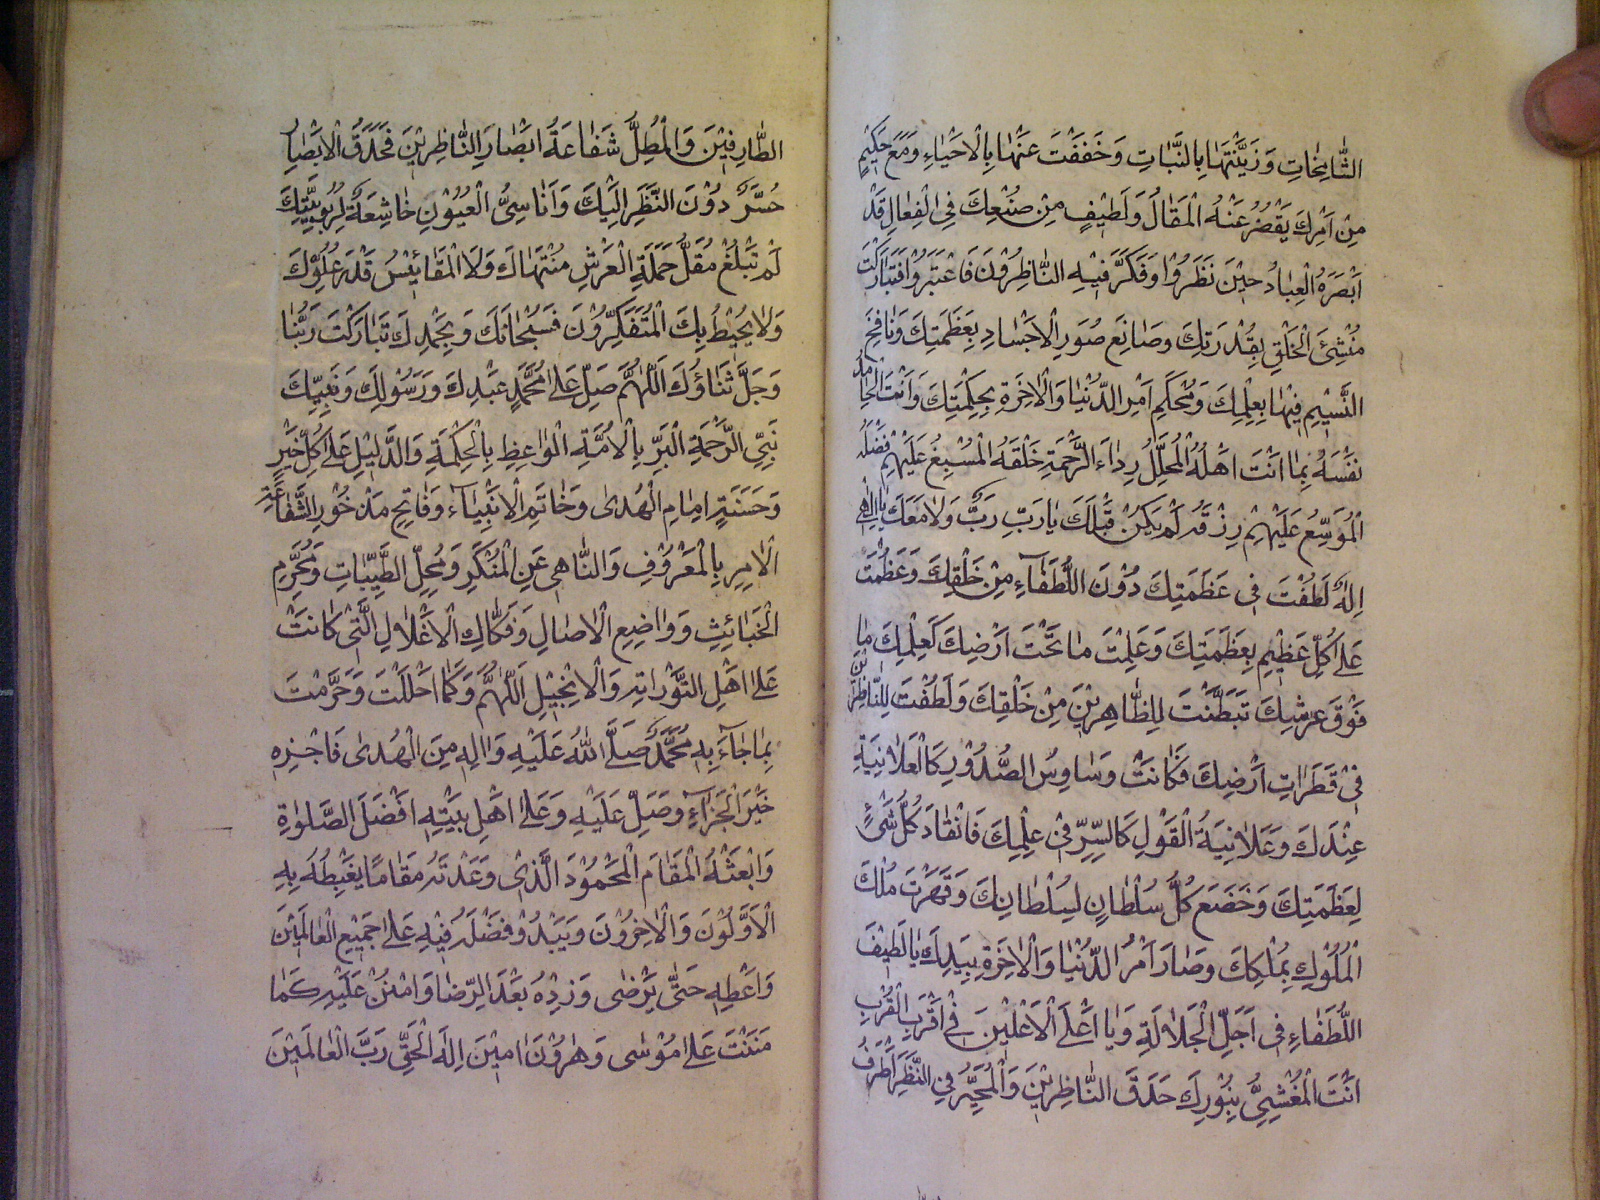 الشَّامِخَاتِ وَزَيَّنْتَهَا بِالنَّبَاتِ وَخَفَفْتَ عَنْهَا بِالْاَحْيَاءِ وَمَعَ حَكِيْمٍ
مِنْ اَمْرِكَ يَقْصُرُ عَنْهُ الْمَقَالُ وَلَطِيْفٍ مِنْ صُنْعِكَ فِى الْفِعَالِ قَدْ
اَبْصَرَهُ الْعِبَادُ حِيْنَ نَظَرُوْا وَفَكَّرَ فِيْهِ النَّاظِرُوْنَ فَاعْتَبَرُوْا فَتَبَارَكْتَ
مُنْشِئَ الْخَلْقِ بِقُدْرَتِكَ وَصَانِعَ صُوَرِ الْاَجْسَادِ بِعَظَمَتِكَ وَنَافِخَ
النَّسِيْمِ فِيْهَا بِعِلْمِكَ وَمُحْكَمِ اَمْرِ الدُّنْيَا وَالْاٰخِرَةِ بِحِكْمَتِكَ وَاَنْتَ الْحَامِدُ
نَفْسَهُ بِمَا اَنْتَ اَهْلُهُ الْمُجَلِّلُ رِدَاءَ الرَّحْمَةِ خَلْقَهُ الْمُسْبِغُ عَلَيْهِمْ فَضْلَهُ
الْمُوَسِّعُ عَلَيْهِمْ رِزْقَهُ لَمْ يَكُنْ قَبْلَكَ يَا رَبِّ رَبٌّ وَلَا مَعَكَ يَا اِلٰهِى
اِلٰهٌ لَطُفْتَ فِى عَظَمَتِكَ دُوْنَ اللُّطَفَآءِ مِنْ خَلْقِكَ وَعَظُمْتَ
عَلٰى كُلِّ عَظِيْمٍ بِعَظَمَتِكَ وَعَلِمْتَ مَا تَحْتَ اَرْضِكَ كَعِلْمِكَ مَا
فَوْقَ عَرْشِكَ تَبَطَّنْتَ لِلظَّاهِرِيْنَ مِنْ خَلْقِكَ وَلَطُفْتَ لِلنَّاظِرِيْنَ
فِىْ قَطَرَاتِ اَرْضِكَ فَكَانَتْ وَسَاوِسُ الصُّدُوْرِ كَالْعَلَانِيَةِ
عِنْدَكَ وَعَلَانِيَةُ الْقَوْلِ كَالسِّرِّ فِىْ عِلْمِكَ فَانْقَادَ كُلُّ شَىْءٍ
لِعَظَمَتِكَ وَخَضَعَ كُلُّ سُلْطَانٍ لِسُلْطَانِكَ وَقَهَرْتَ مُلْكَ
الْمُلُوْكِ بِمُلْكِكَ وَصَارَ اَمْرُ الدُّنْيَا وَالْاٰخِرَةِ بِيَدِكَ يَا لَطِيْفَ
اللُّطَفَاءِ فِى اَجَلِّ الْجَلَالَةِ وَيَا اَعْلَى الْاَعْلَيْنَ فِىْ اَقْرَبِ الْقُرْبِ
اَنْتَ الْمُغْشِىُّ بِنُوْرِكَ حَدَقَ النَّاظِرِيْنَ وَالْمُحَيِّرُ فِى النَّظَرِ اَطْرَفُ
الطَّارِفِيْنَ وَالْمُطِلُّ شَعَاعَهُ اَبْصَارَ النَّاظِرِيْنَ فَحَدَقُ الْاَبْصَارِ
حُسَّرٌ دُوْنَ النَّظَرِ اِلَيْكَ وَاَنَاسِىُّ الْعُيُوْنِ خَاشِعَةٌ لِرُبُوْبِيَّتِكَ
لَمْ تَبْلُغْ مُقَلُ حَمَلَةِ الْعَرْشِ مُنْتَهَاكَ وَلَا الْمَقَايِيْسُ قَدْرَ عُلُوِّكَ
وَلَا يُحِيْطُ بِكَ الْمُتَفَكِّرُوْنَ فَسُبْحَانَكَ وَبِحَمْدِكَ تَبَارَكْتَ رَبَّنَا
وَجَلَّ ثَنَاؤُكَ اَللّٰهُمَّ صَلِّ عَلٰى مُحَمَّدٍ عَبْدِكَ وَرَسُوْلِكَ وَنَبِيِّكَ
نَبِىِّ الرَّحْمَةِ الْبَرِّ بِالْاُمَّةِ الْوَاعِظِ بِالْحِكْمَةِ وَالدَّلِيْلِ عَلٰى كُلِّ خَيْرٍ
وَحَسَنَةٍ اِمَامِ الْهُدٰى وَخَاتَمِ الْاَنْبِيَآءِ وَفَاتِحِ مَذْخُوْرِ الشَّفَاعَةِ
الْاٰمِرِ بِالْمَعْرُوْفِ وَالنَّاهِى عَنِ الْمُنْكَرِ وَمُحِلِّ الطَّيِّبَاتِ وَمُحَرِّمِ
الْخَبَائِثِ وَوَاضِعِ الْاٰصَالِ وَفَكَّاكِ الْاَغْلَالِ الَّتِىْ كَانَتْ
عَلٰى اَهْلِ التَّوْرَاتِهِ وَالْاِنْجِيْلِ اَللّٰهُمَّ وَكَمَا اَحْلَلْتَ وَحَرَّمْتَ
بِمَا جَآءَ بِهِ مُحَمَّدٌ صَلَّى اللّٰهُ عَلَيْهِ وَاٰلِهِ مِنَ الْهُدٰى فَاجْزِهِ
خَيْرَ الْجَزَآءِ وَصَلِّ عَلَيْهِ وَعَلٰى اَهْلِ بَيْتِهِ اَفْضَلَ الصَّلٰوةِ
وَابْعَثْهُ الْمَقَامَ الْمَحْمُوْدَ الَّذِىْ وَعَدْتَهُ مَقَامًا يَغْبِطُهُ بِهِ
الْاَوَّلُوْنَ وَالْاٰخِرُوْنَ وَيَبْدُوْ فَضْلُهُ فِيْهِ عَلٰى جَمِيْعِ الْعَالَمِيْنَ
وَاَعْطِهِ حَتّٰى يَرْضٰى وَزِدْهُ بَعْدَ الرِّضَا وَامْنُنْ عَلَيْهِ كَمَا
مَنَنْتَ عَلٰى مُوْسٰى وَهٰرُوْنَ اٰمِيْنَ اِلٰهَ الْحَقِّ رَبَّ الْعَالَمِيْنَ